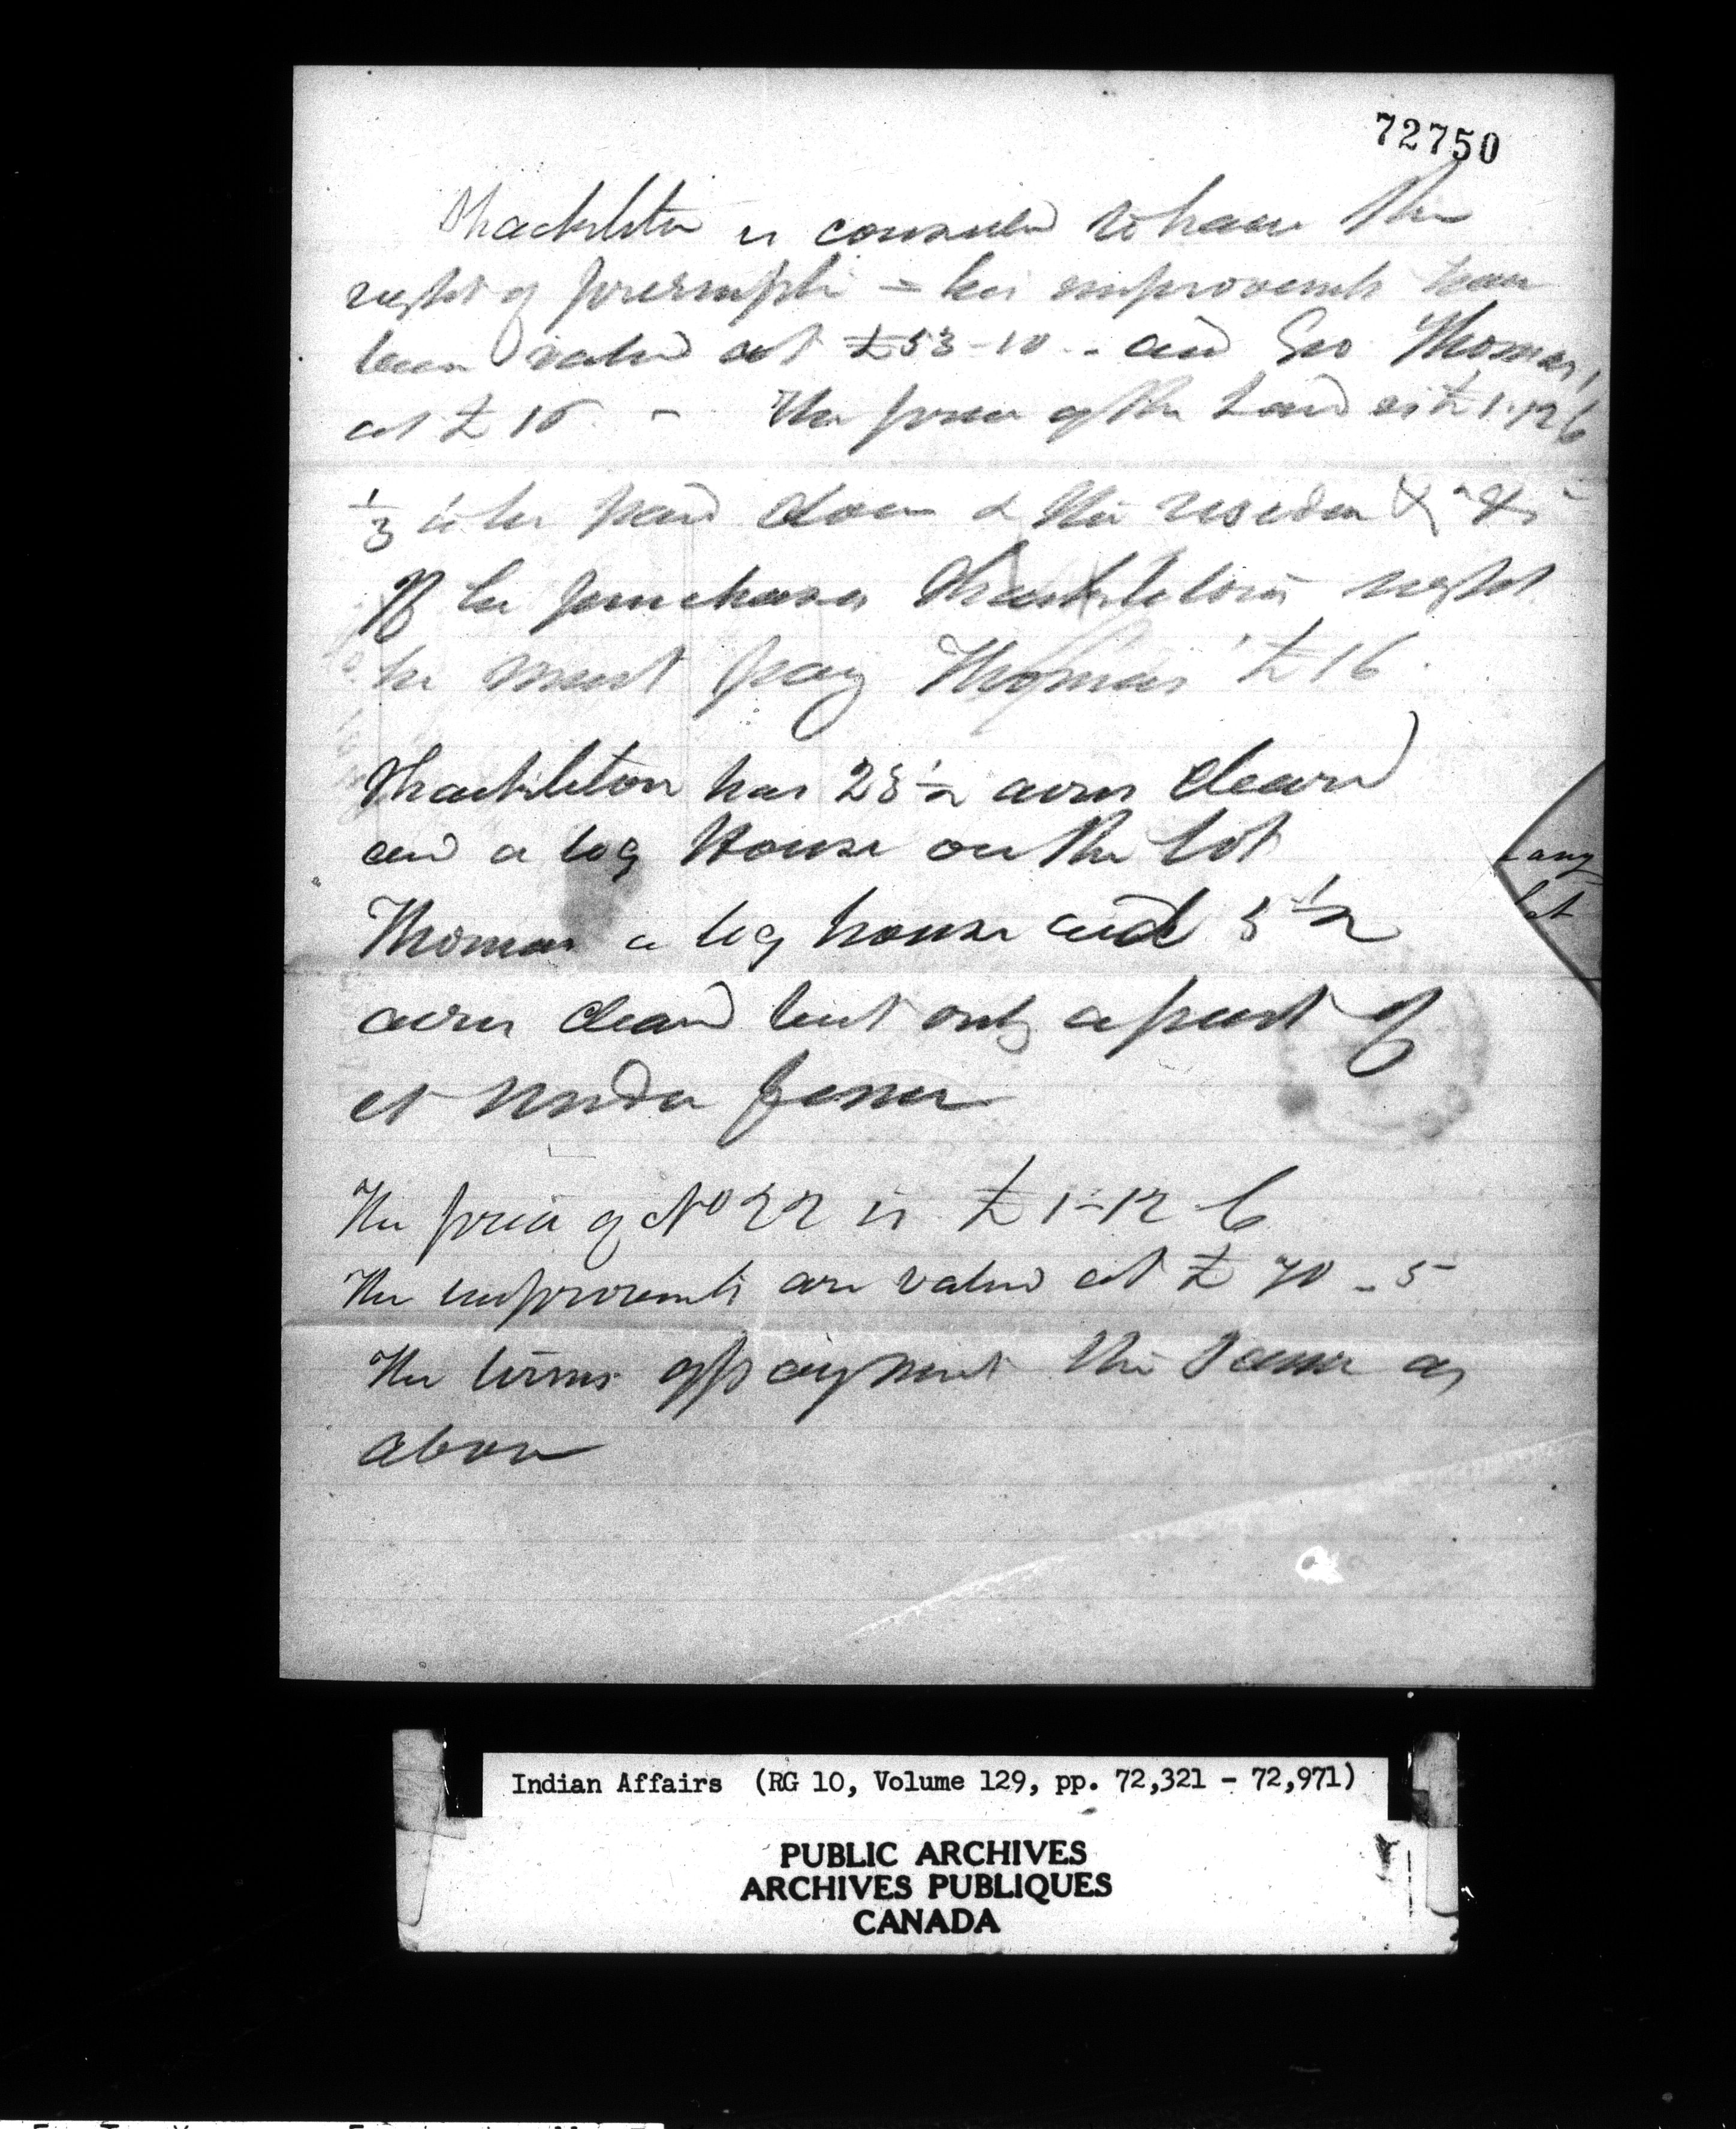 72750
Shackleton is considered to have the
right of preemption = his improvements have
been valued at £53-10 - and Geo Thomas'
at £16. - The price of the Land is £1.12.6
1/3 to be paid down & the residue &c &c
If he purchases Shackleton's right
he must pay Thomas' £16.
Shackleton has 28 1/2 acres cleared
and a log House on the Lot
Thomas a log house and 5 1/2
acres cleared but only a part of
it under fence
The price of No 22 is £1-12-6
The improvements are valued at £70-5
The terms of payment the same as
above
any
Lot
Indian Affairs (RG 10, Volume 129, pp. 72,321 - 72,971)
PUBLIC ARCHIVES
ARCHIVES PUBLIQUES
CANADA